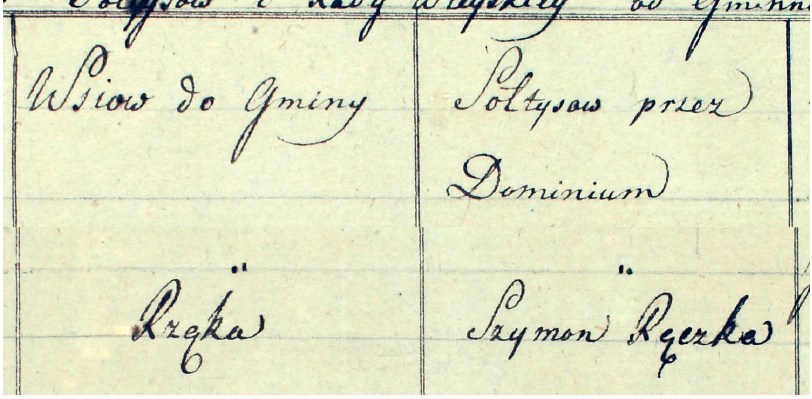 Sołtysow i Rady Wieyskiey od Gminn
Wsiow do Gminy
Sołtysow przez
Dominium
"
"
Rząka
Szymon Rączka